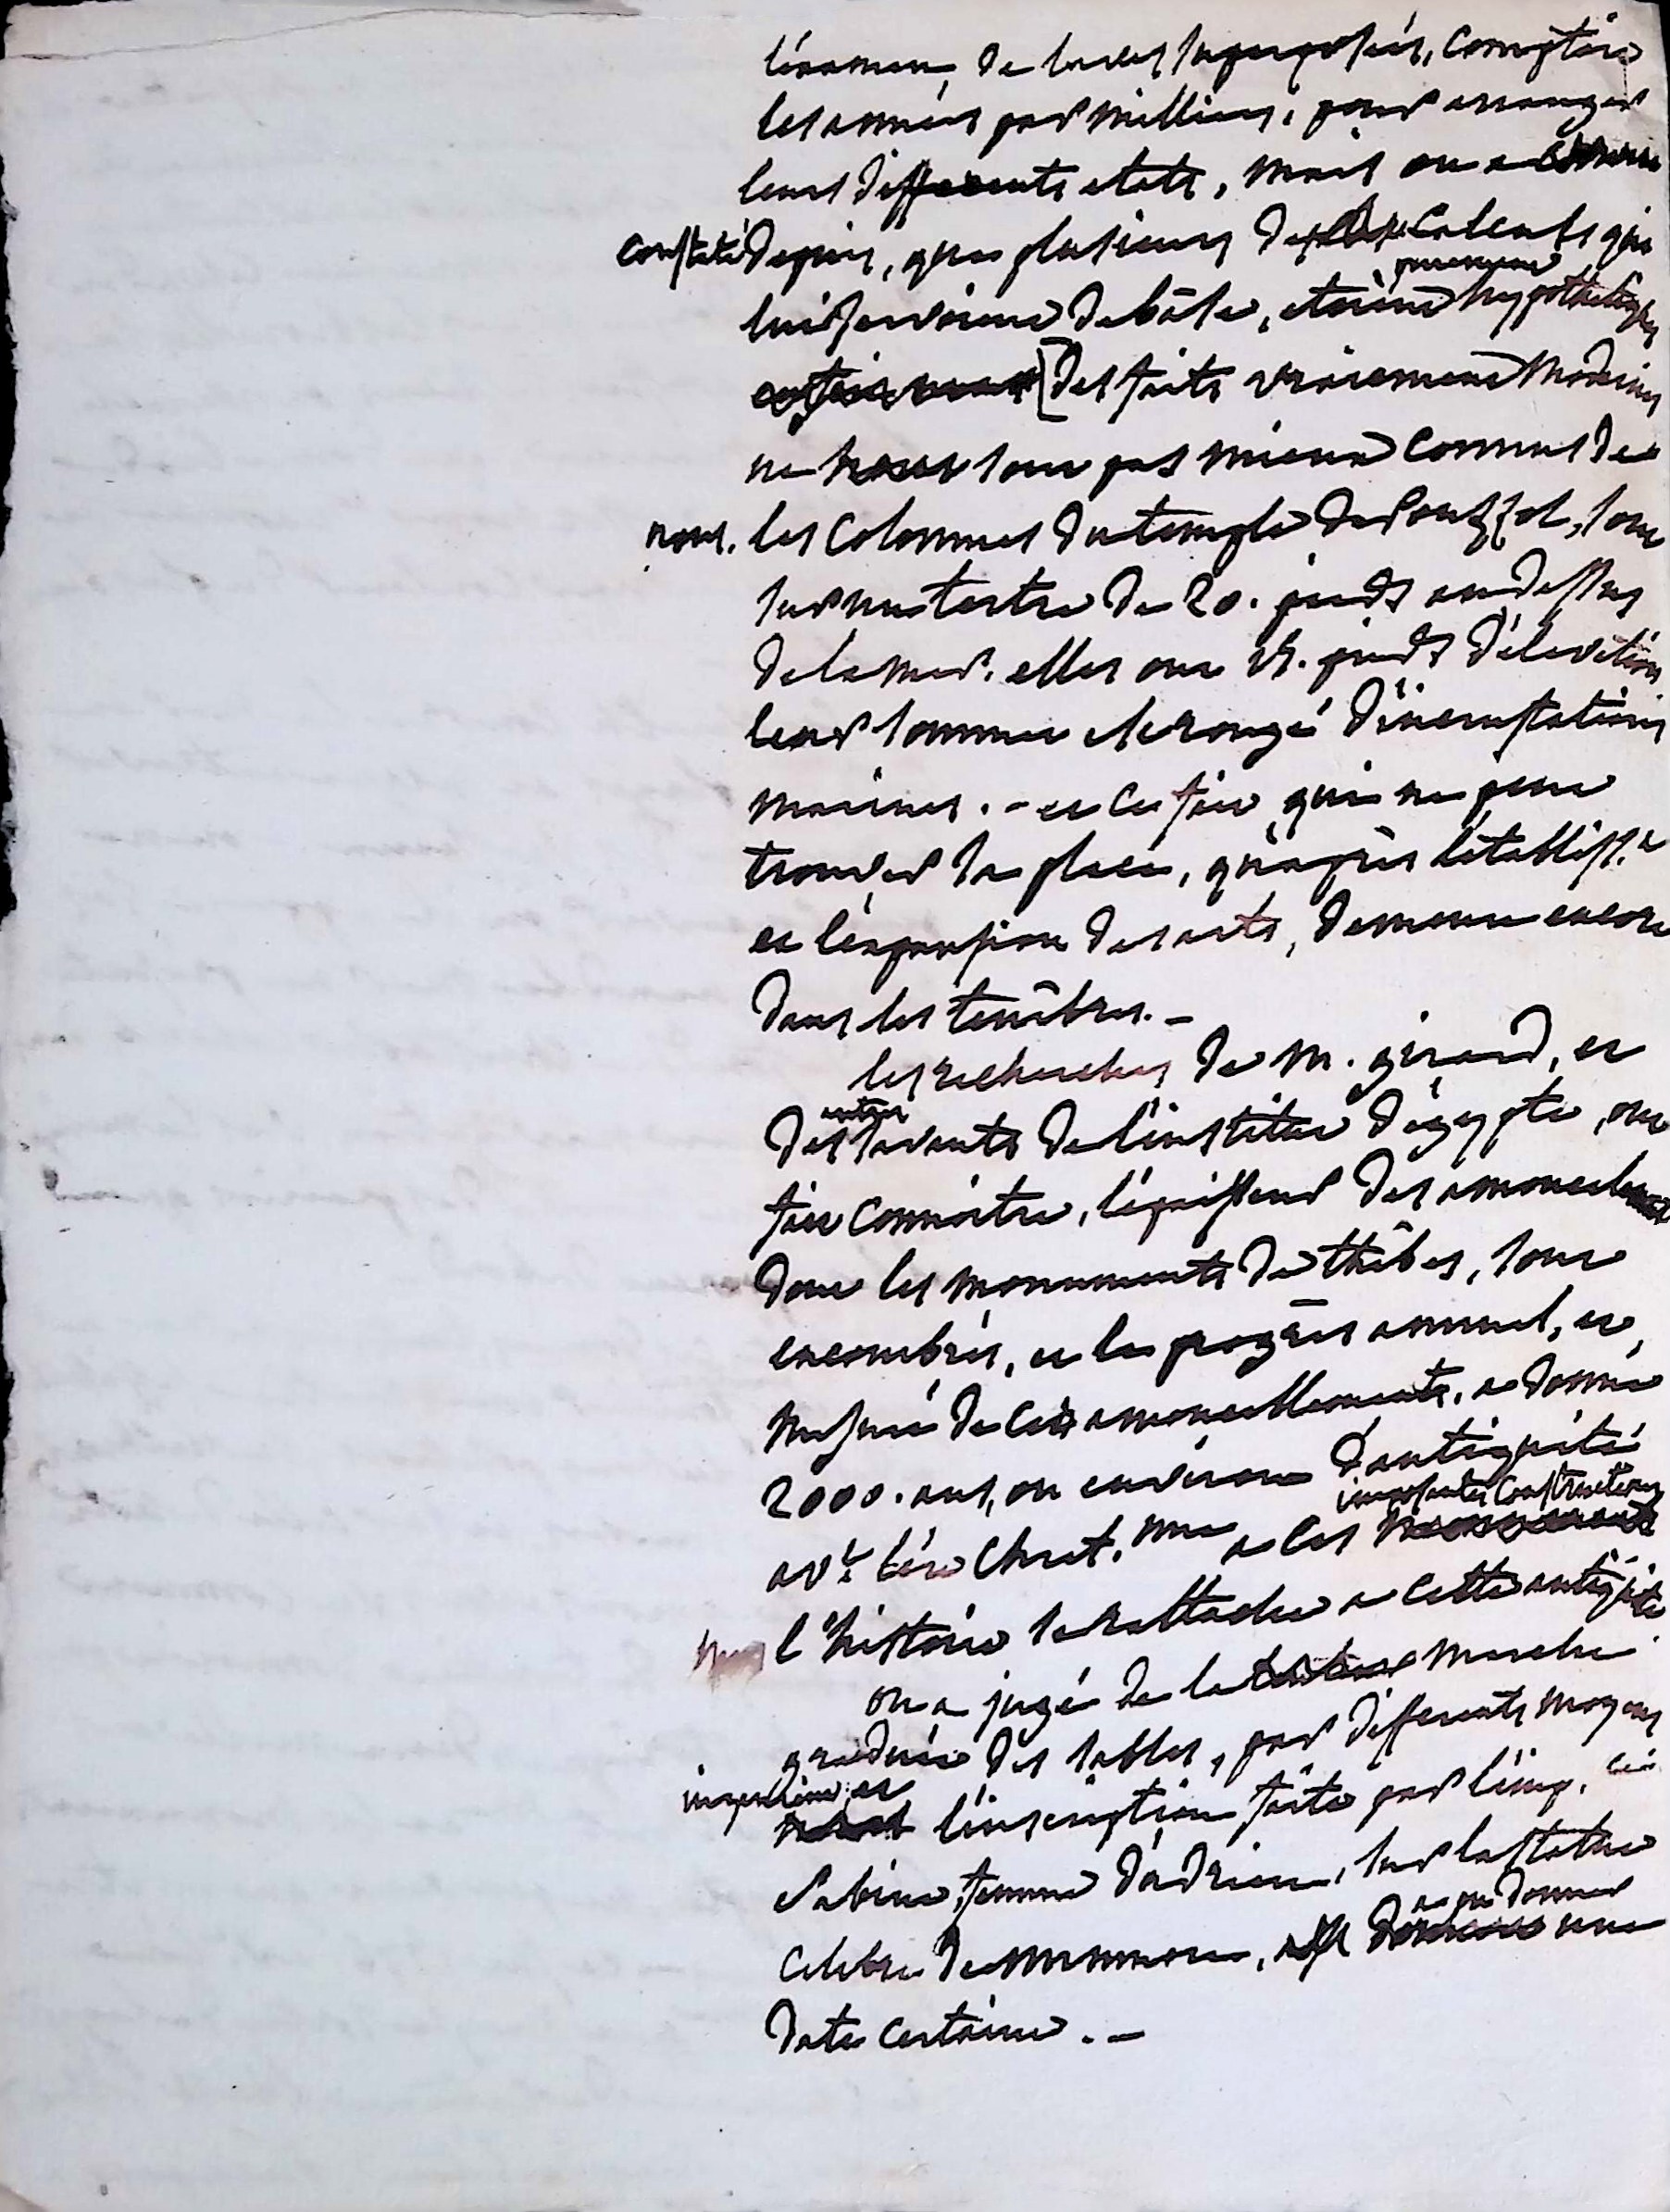 l'examen de laves superposées, comptoir
les années par milliers, pour arranger
leurs differents etats, mais on a
constaté depuis, que plusieurs des calculs qui
lui servoient de bâse, etoient purement hypothetiques
des faits vraiement modernes
ne sont pas mieux connus de
nous. les colonnes du temple de Pouzzol, sont
sur un tertre de 20. pieds audessus
de la mer. elles ont 15. pieds d'élevation
leur sommet est rongé d'incrustations
marines. - et ce fait qui ne peut
trouver sa place, qu'après l'établiss.t
et l'expansion des arts, demeure encore
dans les tenêbres. -
les recherches de M. girard, et
des autres savants de l'institut d'égypte, ont
fait connoitre, l'épaisseur des amoncel
dont les monuments de thêbes, sont
encombrés, et le progrès annuel, et
mesuré de ces amoncellements, a donné
2000. ans, ou environ d'antiquité
av.t l'ére Chret. nne a ces imposantes constructions
l'histoire se rattache a cette antiquité
on a jugé de la marche
graduée des sables, par differents moyens
et l'inscription faite par l'imp. ce
Sabine, femme d'adrien, sur la statue
celebre de memnon, a pu donner une
date certaine. -